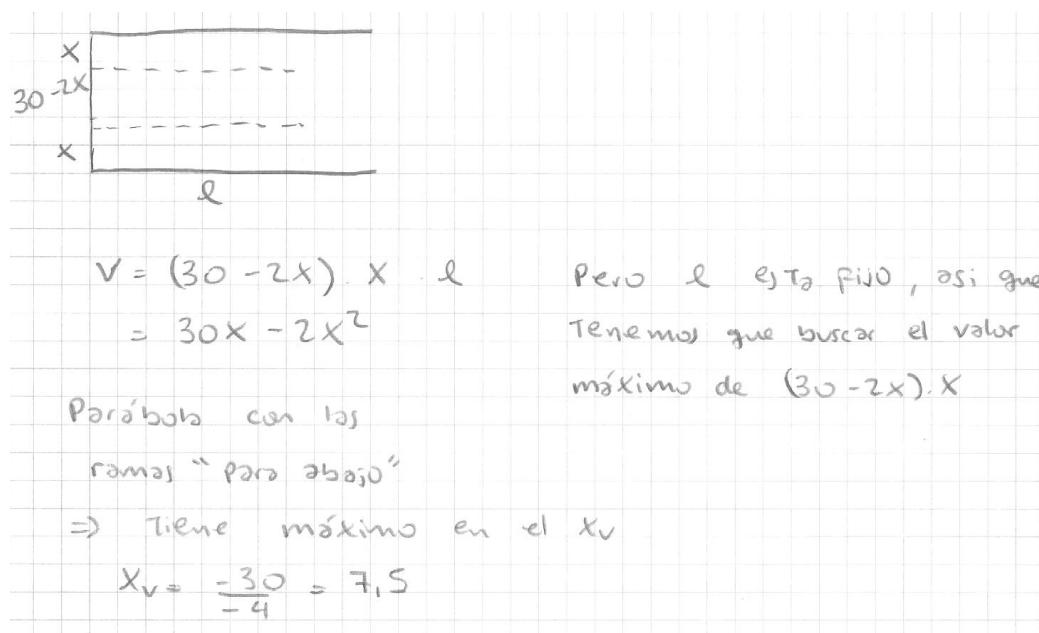 x
30-2x
x
l
V = (30 - 2x) . x . l
= 30x - 2x²
Pero l está fijo, asi que
Tenemos que buscar el valor
máximo de (30 - 2x). x
Parábola con las
ramas "para abajo"
⇒ Tiene máximo en el xv
Xv = -30/-4 = 7,5